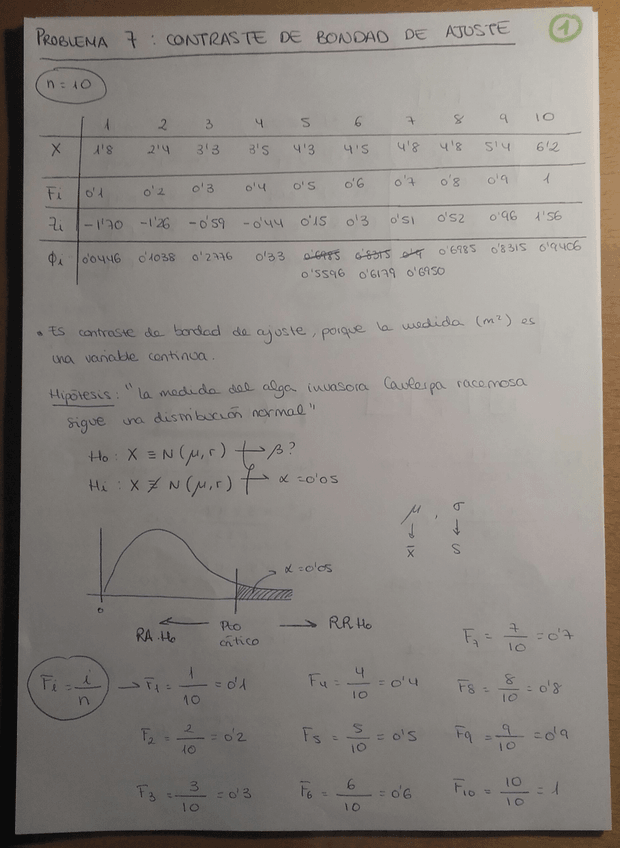 PROBLEMA 7 : CONTRASTE DE BONDAD DE AJUSTE
1
n = 10
1 2 3 4 5 6 7 8 9 10
X 1'8 2'4 3'3 3'5 4'3 4'5 4'8 4'8 5'4 6'2
Fi 0'1 0'2 0'3 0'4 0'5 0'6 0'7 0'8 0'9 1
Zi -1'70 -1'26 -0'59 -0'44 0'15 0'3 0'51 0'52 0'96 1'56
Φi 0'0446 0'1038 0'2776 0'33 0'6985 0'8315 0'9 0'6985 0'8315 0'9406
0'5596 0'6179 0'6950
• Es contraste de bondad de ajuste, porque la medida (m²) es
una variable continua.
Hipótesis : "La medida del alga invasora Caulerpa racemosa
sigue una distribución normal"
Ho : X ≡ N(μ,σ) → β?
Hi : X ≢ N(μ,σ) → α = 0'05
μ , σ
↓ ↓
x̄ S
α = 0'05
0
RA.Ho ← Pto → RR.Ho
crítico
F7 = 7/10 = 0'7
Fi = i/n → F1 = 1/10 = 0'1 F4 = 4/10 = 0'4 F8 = 8/10 = 0'8
F2 = 2/10 = 0'2 F5 = 5/10 = 0'5 F9 = 9/10 = 0'9
F3 = 3/10 = 0'3 F6 = 6/10 = 0'6 F10 = 10/10 = 1